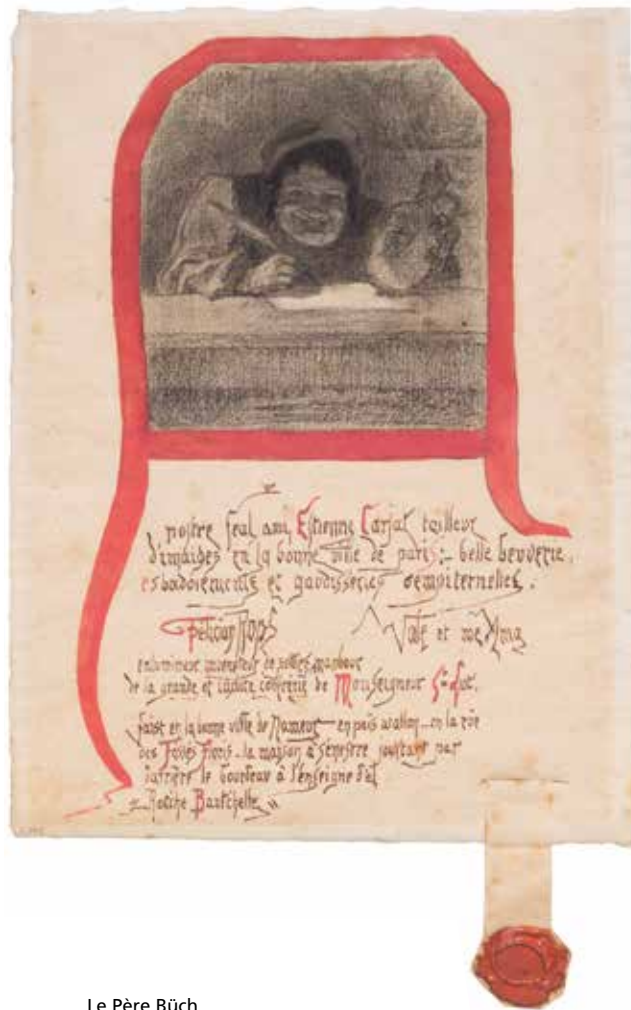 A nostre feal ami, Estienne Carjat tailleur
d'imaiges en la bonne ville de paris :- belle beuverie,
esbadoiements et gaudisseries sempiternelles.
Félicien Rops Vale et me Ama
enlumineur inventeur de
de la grande et confrerie de Monseigneur St Luc.
faist en la bonne ville de Nameur — en païs wallon — en la rüe
des Fossés fleuris — la maison à senestre par
darrière le bourteau à l'enseigne d'al
" Rotche
Le Père Büch